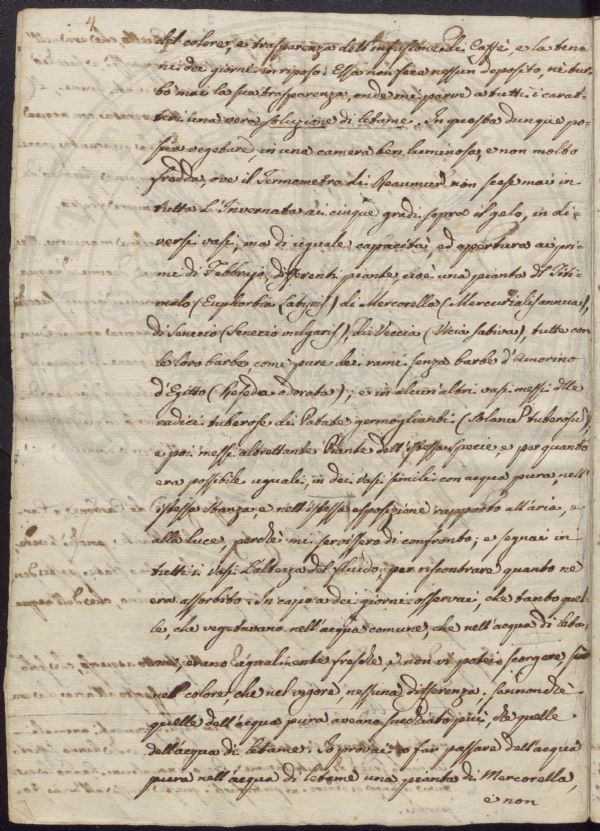 4
del colore, e trasparenza dell'infusione di Caffè, e la tenni dei giorni in riposo. Essa non fece nessun deposito, nè tur-
bò mai la sua trasparenza, onde mi parve a tutti i carat-
teri una vera soluzione di letame. In questa dunque po-
si a vegetare in una camera ben luminosa, e non molto
fredda, ove il Termometro di Reaumur non scese mai in
tutta L'Invernata ai cinque gradi sopra il gelo, in di-
versi vasi, ma di uguale capacità, ed apertura ai pri-
mi di Febbrajo, differenti piante, cioè una pianta di Titi-
malo (Euphorbia Latyris) di Mercorella (Mercurialis annua),
di Senecio (Senecio vulgaris), di Veccia (Vicia sativa), tutte con
le loro barbe, come pure dei rami senza barbe d'Amorino
d'Egitto (Reseda odorata); e in alcun'altri vasi messi delle
radici tuberose di Patate germoglianti (Solanum tuberosum),
e poi messi altrettante Piante dell'istessa specie e per quanto
era possibile uguali, in dei vasi simili con acqua pura, nell'
istessa stanza, e nell'istessa esposizione rapporto all'aria, e
alla luce, perchè mi servissero di confronto; e segnai in
tutti i vasi L'altezza del fluido, per riscontrare quanto ne
era assorbito. In capo a dei giorni osservai, che tanto quel-
le, che vegetavano nell'acqua comune, che nell'acqua di leta-
me, erano egualmente fresche, e non vi potei scorgere sia
nel colore, che nel vigore, nessuna differenza; sennonchè
quelle dell'acqua pura aveano succhiato più, che quelle
dell'acqua di letame. Io provai a far passare dell'acqua
pura nell'acqua di letame una pianta di Mercorella,
e non